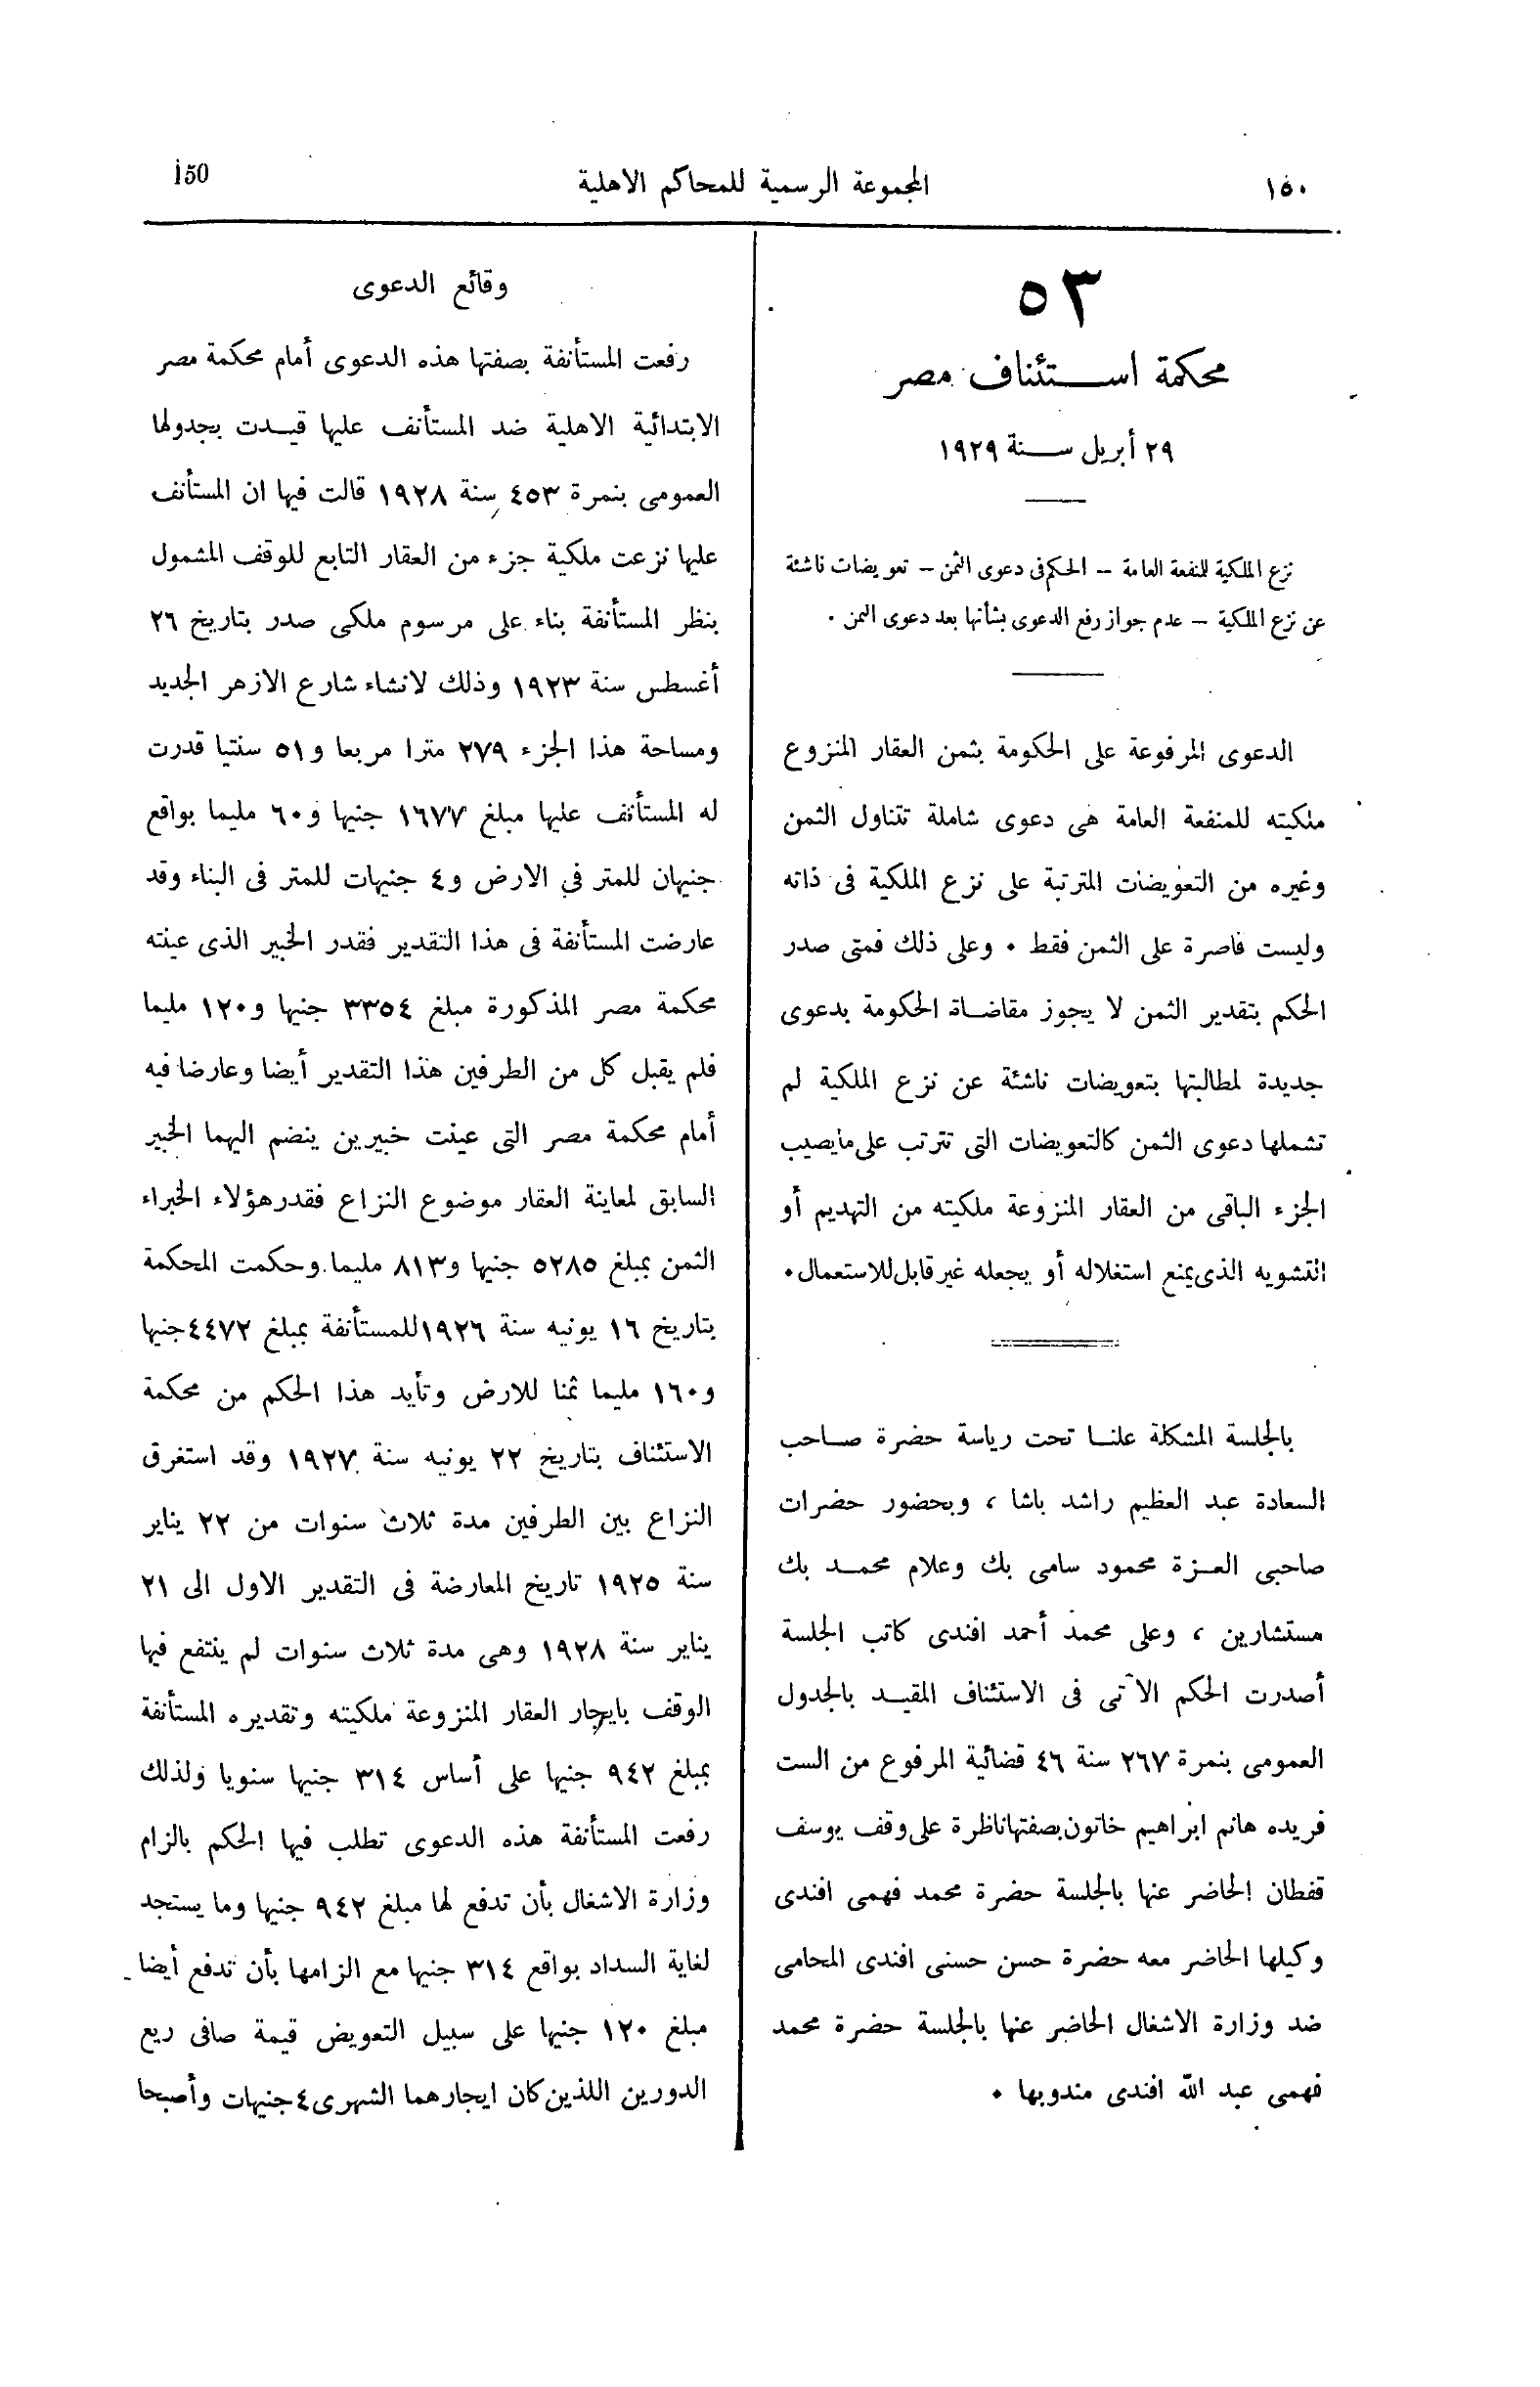 ١٥٠
المجموعة الرسمية للمحاكم الاهلية
150
٥٣
محكمة استئناف مصر
٢٩ أبريل سنة ١٩٢٩
نزع الملكية للنفعة العامة – الحكم فى دعوى الثمن – تعويضات ناشئة
عن نزع الملكية – عدم جواز رفع الدعوى بشأنها بعد دعوى الثمن .
الدعوى المرفوعة على الحكومة بثمن العقار المنزوع
ملكيته للمنفعة العامة هى دعوى شاملة تتناول الثمن
وغيره من التعويضات المترتبة على نزع الملكية فى ذاته
وليست قاصرة على الثمن فقط . وعلى ذلك فمتى صدر
الحكم بتقدير الثمن لا يجوز مقاضاة الحكومة بدعوى
جديدة لمطالبتها بتعويضات ناشئة عن نزع الملكية لم
تشملها دعوى الثمن كالتعويضات التى تترتب على مايصيب
الجزء الباقى من العقار المنزوعة ملكيته من التهديم أو
التشويه الذى يمنع استغلاله أو يجعله غير قابل للاستعمال .
بالجلسة المشكلة علنا تحت رياسة حضرة صاحب
السعادة عبد العظيم راشد باشا ، وبحضور حضرات
صاحبى العزة محمود سامى بك وعلام محمد بك
مستشارين ، وعلى محمد أحمد افندى كاتب الجلسة
أصدرت الحكم الآتى فى الاستئناف المقيد بالجدول
العمومى بنمرة ٢٦٧ سنة ٤٦ قضائية المرفوع من الست
فريده هانم ابراهيم خاتون بصفتها ناظرة على وقف يوسف
قفطان الحاضر عنها بالجلسة حضرة محمد فهمى افندى
وكيلها الحاضر معه حضرة حسن حسنى افندى المحامى
ضد وزارة الاشغال الحاضر عنها بالجلسة حضرة محمد
فهمى عبد الله افندى مندوبها .
وقائع الدعوى
رفعت المستأنفة بصفتها هذه الدعوى أمام محكمة مصر
الابتدائية الاهلية ضد المستأنف عليها قيدت بجدولها
العمومى بنمرة ٤٥٣ سنة ١٩٢٨ قالت فيها ان المستأنف
عليها نزعت ملكية جزء من العقار التابع للوقف المشمول
بنظر المستأنفة بناء على مرسوم ملكى صدر بتاريخ ٢٦
أغسطس سنة ١٩٢٣ وذلك لانشاء شارع الازهر الجديد
ومساحة هذا الجزء ٢٧٩ مترا مربعا و٥١ سنتيا قدرت
له المستأنف عليها مبلغ ١٦٧٧ جنيها و٦٠ مليما بواقع
جنيهان للمتر في الارض و٤ جنيهات للمتر فى البناء وقد
عارضت المستأنفة فى هذا التقدير فقدر الخبير الذى عينته
محكمة مصر المذكورة مبلغ ٣٣٥٤ جنيها و١٢٠ مليما
فلم يقبل كل من الطرفين هذا التقدير أيضا وعارضا فيه
أمام محكمة مصر التى عينت خبيرين ينضم اليهما الخبير
السابق لمعاينة العقار موضوع النزاع فقدر هؤلاء الخبراء
الثمن بمبلغ ٥٢٨٥ جنيها و٨١٣ مليما وحكمت المحكمة
بتاريخ ١٦ يونيه سنة ١٩٢٦ للمستأنفة بمبلغ ٤٤٧٢ جنيها
و١٦٠ مليما ثمنا للارض وتأيد هذا الحكم من محكمة
الاستئناف بتاريخ ٢٢ يونيه سنة ١٩٢٧ وقد استغرق
النزاع بين الطرفين مدة ثلاث سنوات من ٢٢ يناير
سنة ١٩٢٥ تاريخ المعارضة فى التقدير الاول الى ٢١
يناير سنة ١٩٢٨ وهى مدة ثلاث سنوات لم ينتفع فيها
الوقف بايجار العقار المنزوعة ملكيته وتقديره المستأنفة
بمبلغ ٩٤٢ جنيها على أساس ٣١٤ جنيها سنويا ولذلك
رفعت المستأنفة هذه الدعوى تطلب فيها الحكم بالزام
وزارة الاشغال بأن تدفع لها مبلغ ٩٤٢ جنيها وما يستجد
لغاية السداد بواقع ٣١٤ جنيها مع الزامها بأن تدفع أيضا
مبلغ ١٢٠ جنيها على سبيل التعويض قيمة صافى ريع
الدورين اللذين كان ايجارهما الشهرى ٤ جنيهات وأصبحا